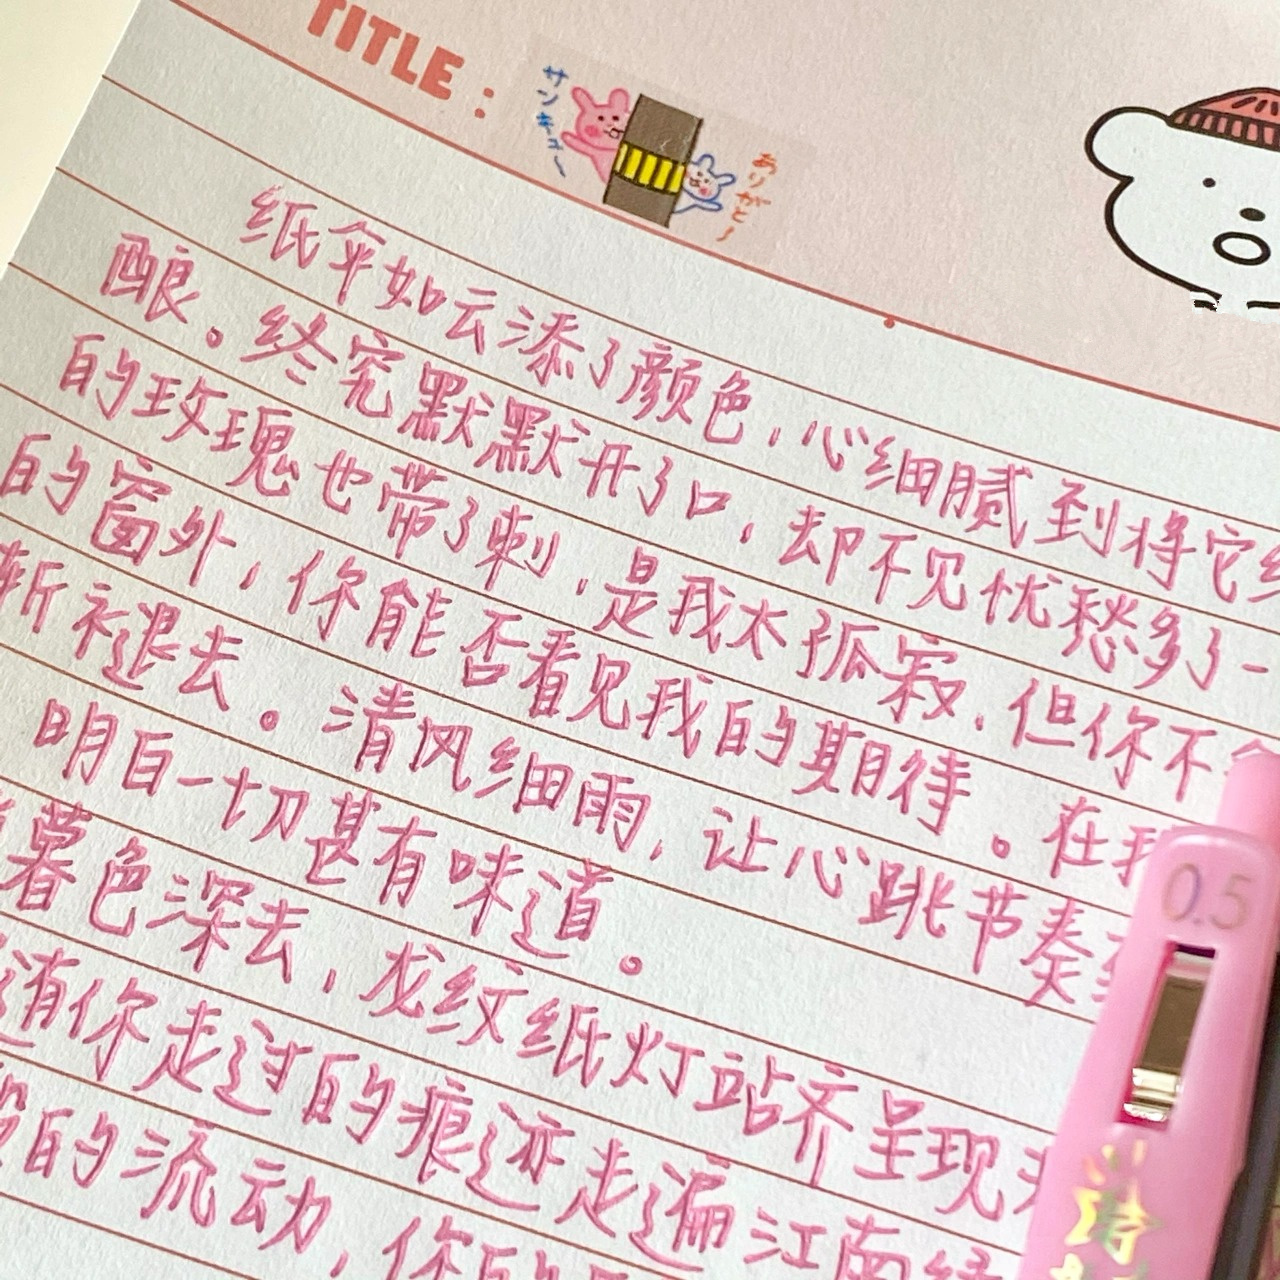 TITLE：
サンキュ〜
ありがと〜
纸伞如云添了颜色，心细腻到将它
酿。终究默默开了口，却不见忧愁多了一
的玫瑰也带了刺，是我太孤寂，但你不
的窗外，你能否看见我的期待。在我
渐褪去。清风细雨，让心跳节奏
明白一切甚有味道。
暮色深去，龙纹纸灯站齐呈现
你走过的痕迹走遍江南
的流动，你的
0.5